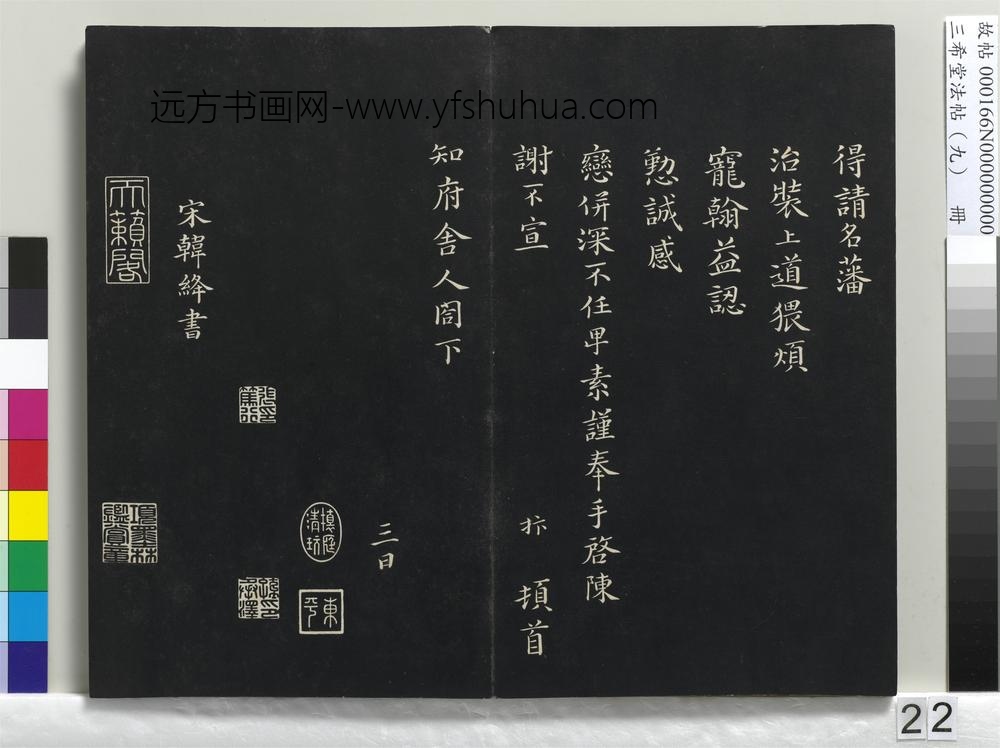 得請名藩
治裝上道猥煩
寵翰益認
懃誠感
戀併深不任卑素謹奉手啓陳
謝不宣 拤 頓首
知府舍人閤下
三日
宋韓絳書
天籟閣
項墨林鑑賞章
東平
远方书画网-www.yfshuhua.com
故帖 000166N000000000
三希堂法帖(九) 冊
22